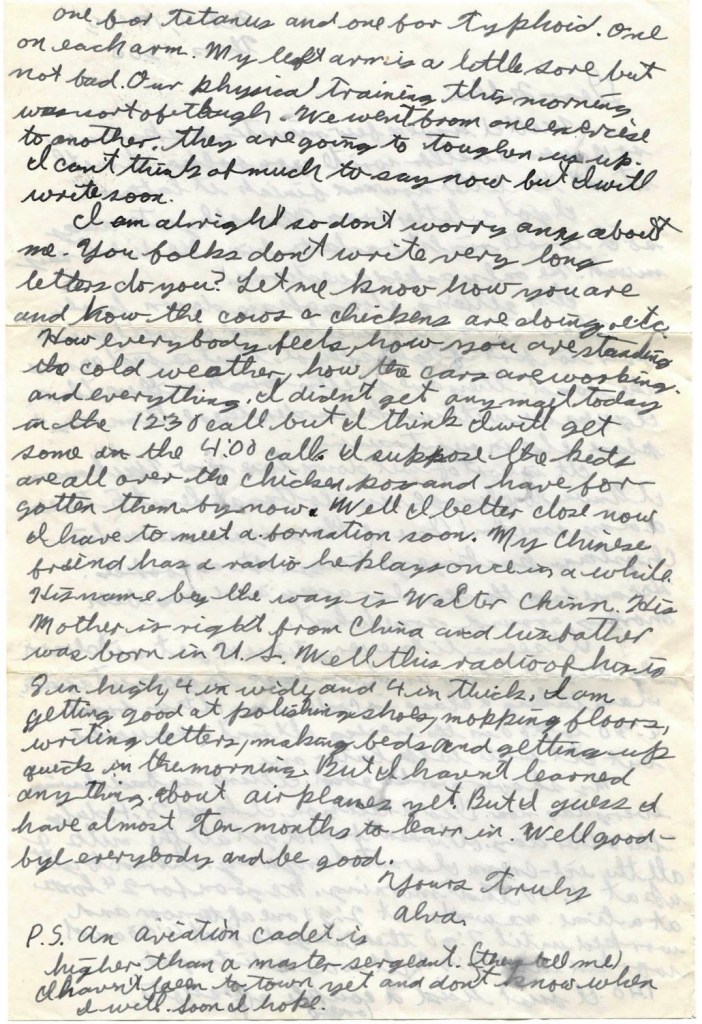 one for tetanus and one for typhoid. One
on each arm. My left arm is a little sore but
not bad. Our physical training this morning
was sort of tough. We went from one exercise
to another. they are going to toughen us up.
I cant think of much to say now but I will
write soon.
I am alright so don't worry any about
me. You folks don't write very long
letters do you? Let me know how you are
and how the cows & chickens are doing, etc.
How everybody feels, how you are standing
the cold weather, how the cars are working.
and everything. I didn't get any mail today
in the 12:30 call but I think I will get
some in the 4:00 call. I suppose the kids
are all over the chicken pox and have for-
gotten them by now. Well I better close now
I have to meet a formation soon. My Chinese
friend has a radio he plays once in a while.
His name by the way is Walter Chinn. His
Mother is right from China and his father
was born in U.S. Well this radio of his is
in high, 4 in wide, and 4 in thick. I am
getting good at polishing shoes, mopping floors,
writing letters, making beds and getting up
quick in the morning. But I havn't learned
anything about airplanes yet. But I guess I
have almost ten months to learn in. Well good-
bye everybody and be good.
Yours Truly
Alva.
P.S. An aviation cadet is
higher than a master sergeant. (they tell me)
I havn't been to town yet and don't know when
I will. soon I hope.